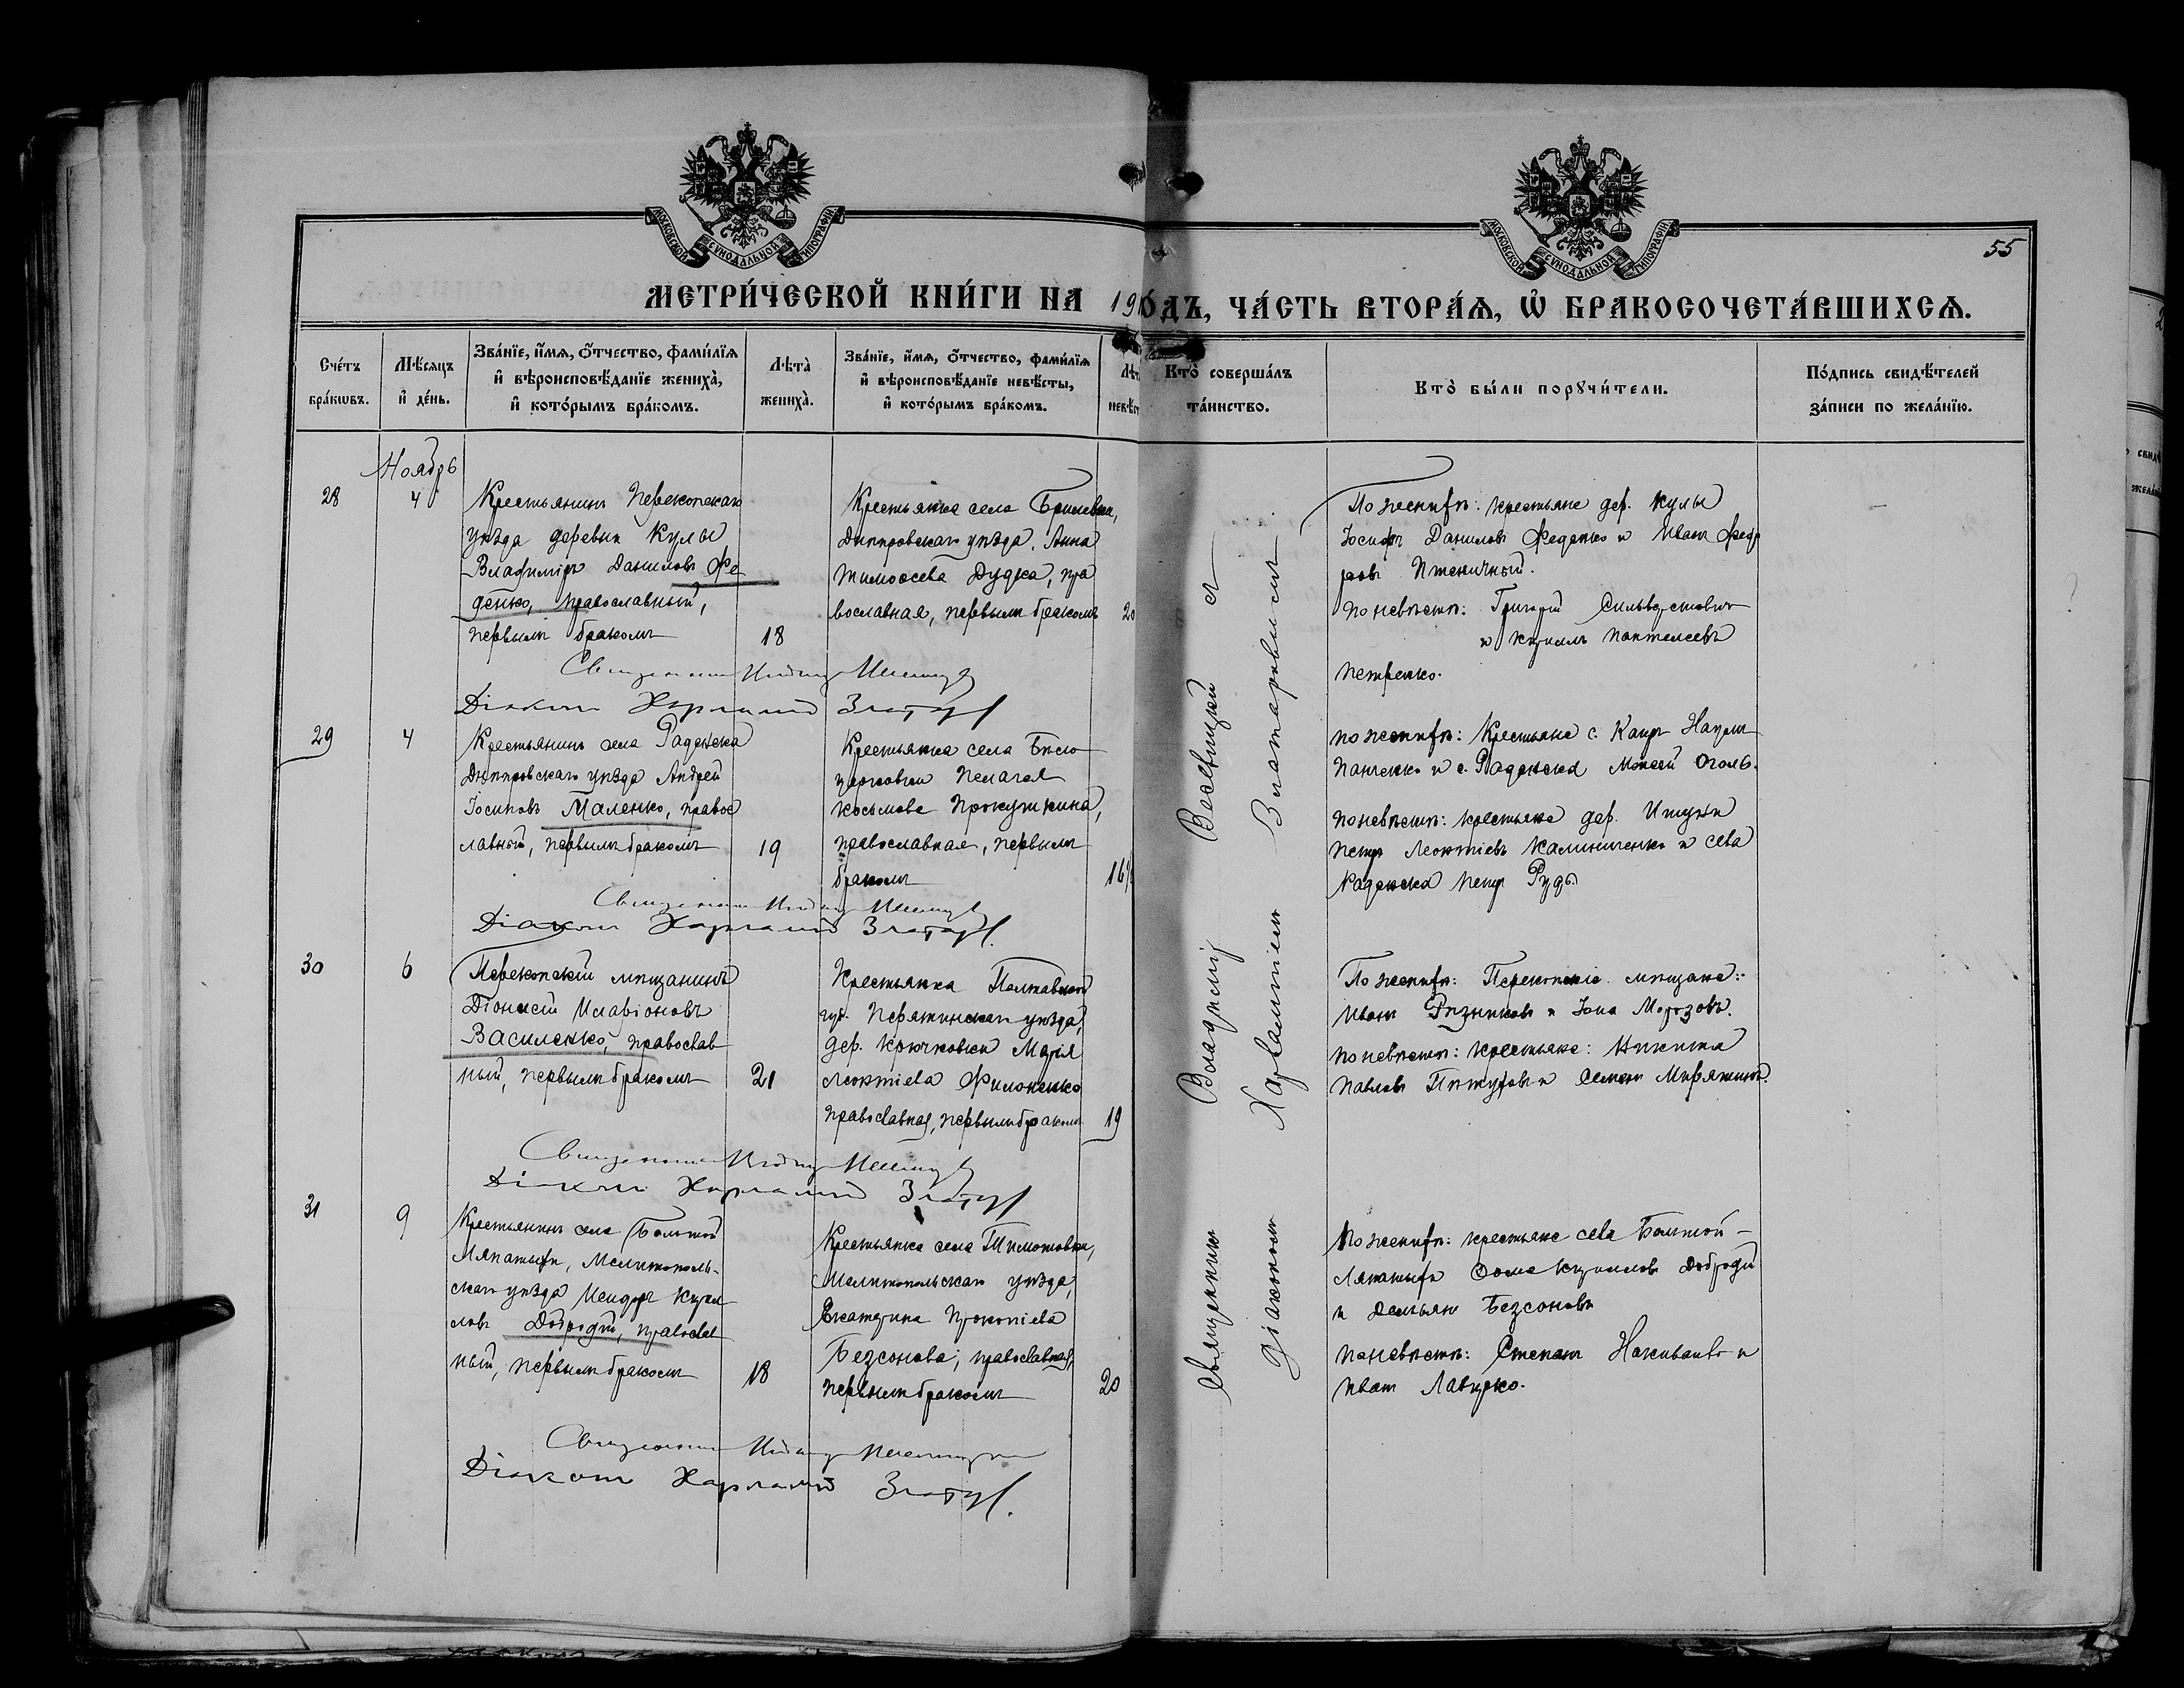 МОСКОВСКОЙ СѴНОДАЛЬНОЙ ТИПОГРАФІИ
МОСКОВСКОЙ СѴНОДАЛЬНОЙ ТИПОГРАФІИ
55
МЕТРИ́ЧЕСКОЙ КНИ́ГИ НА 19
ОДЪ, ЧА́СТЬ ВТОРА́Ѧ, Ѡ҆ БРАКОСОЧЕТА́ВШИХСѦ.
Сче́тъ бра́кѡвъ.
Мѣ́сяцъ и҆ де́нь.
Зва́нїе, и҆́мѧ, ѻ҆́тчество, фами́лїѧ и҆ вѣроисповѣ́данїе жениха̀, и҆ кото́рымъ бра́комъ.
Лѣта̀ жениха̀.
Зва́нїе, и҆́мѧ, ѻ҆́тчество, фами́лїѧ и҆ вѣроисповѣ́данїе невѣ́сты, и҆ кото́рымъ бра́комъ.
Лѣт
невѣс
Кто̀ соверша́лъ та́инство.
Кто̀ бы́ли порꙋчи́тели.
По́дпись свидѣ́телей за́писи по жела́нїю.
Ноябрь
28
4
Крестьянинъ Перекопскаго
уѣзда деревни Кулы
Владиміръ Даниловъ Фе
денко, православный,
первымъ бракомъ
18
Крестьянка села Брилевки,
Днѣпровскаго уѣзда, Анна
Тимоѳеева Дудка, пра
вославная, первымъ бракомъ
20
По женихѣ: крестьяне дер. Кулы
Іосифъ Даниловъ Феденко и Иванъ Федо
ровъ Пшеничный.
По невѣстѣ: Григорій Сильвестровичъ
и Кириллъ Пантелеевъ
Петренко.
Священникъ
Діаконъ Харлампій Златар
29
4
Крестьянинъ села Раденска
Днѣпровскаго уѣзда Андрей
Іосиповъ Маленко, правос
лавный, первымъ бракомъ
19
Крестьянка села Бѣло
церковки Пелагея
Косьмова Прокушкина,
православная, первымъ
бракомъ
16½
по женихѣ: Крестьяне с. Каиръ Наумъ
Панченко и с. Раденска Моисей Оголь.
по невѣстѣ: крестьяне дер.
Петръ Леонтіевъ Калиниченко и села
Раденска Петръ Рудь.
Священникъ
Діаконъ Харлампій Златар.
30
6
Перекопскій мѣщанинъ
Діонисій Иларіоновъ
Василенко, православ
ный, первымъ бракомъ
21
Крестьянка Полтавской
губ. Пирятинскаго уѣзда,
дер. Крючковки Марія
Леонтіева Филоненко
православная, первымъ бракомъ
19
По женихѣ: Перекопскіе мѣщане:
Иванъ Рѣзниковъ и Іона Морозовъ.
по невѣстѣ: крестьяне: Никита
Павловъ и Семенъ
Священникъ
Діаконъ Харлампій Златар
31
9
Крестьянинъ села Большой
Лепатихи, Мелитополь-
скаго уѣзда Исидоръ Кирил
ловъ Добродій, православ
ный, первымъ бракомъ
18
Крестьянка села Тимошовки,
Мелитопольскаго уѣзда,
Екатерина Прокопіева
Безсонова, православная,
первымъ бракомъ
20
По женихѣ: крестьяне села Большой-
Лепатихи Ѳома Кирилловъ Добродій
и Демьянъ Безсоновъ
по невѣстѣ: Степанъ и
Иванъ Лавренко.
Священникъ
Діаконъ Харлампій Златар.
Священникъ Владиміръ
Діакономъ Харлампіемъ Златаровымъ